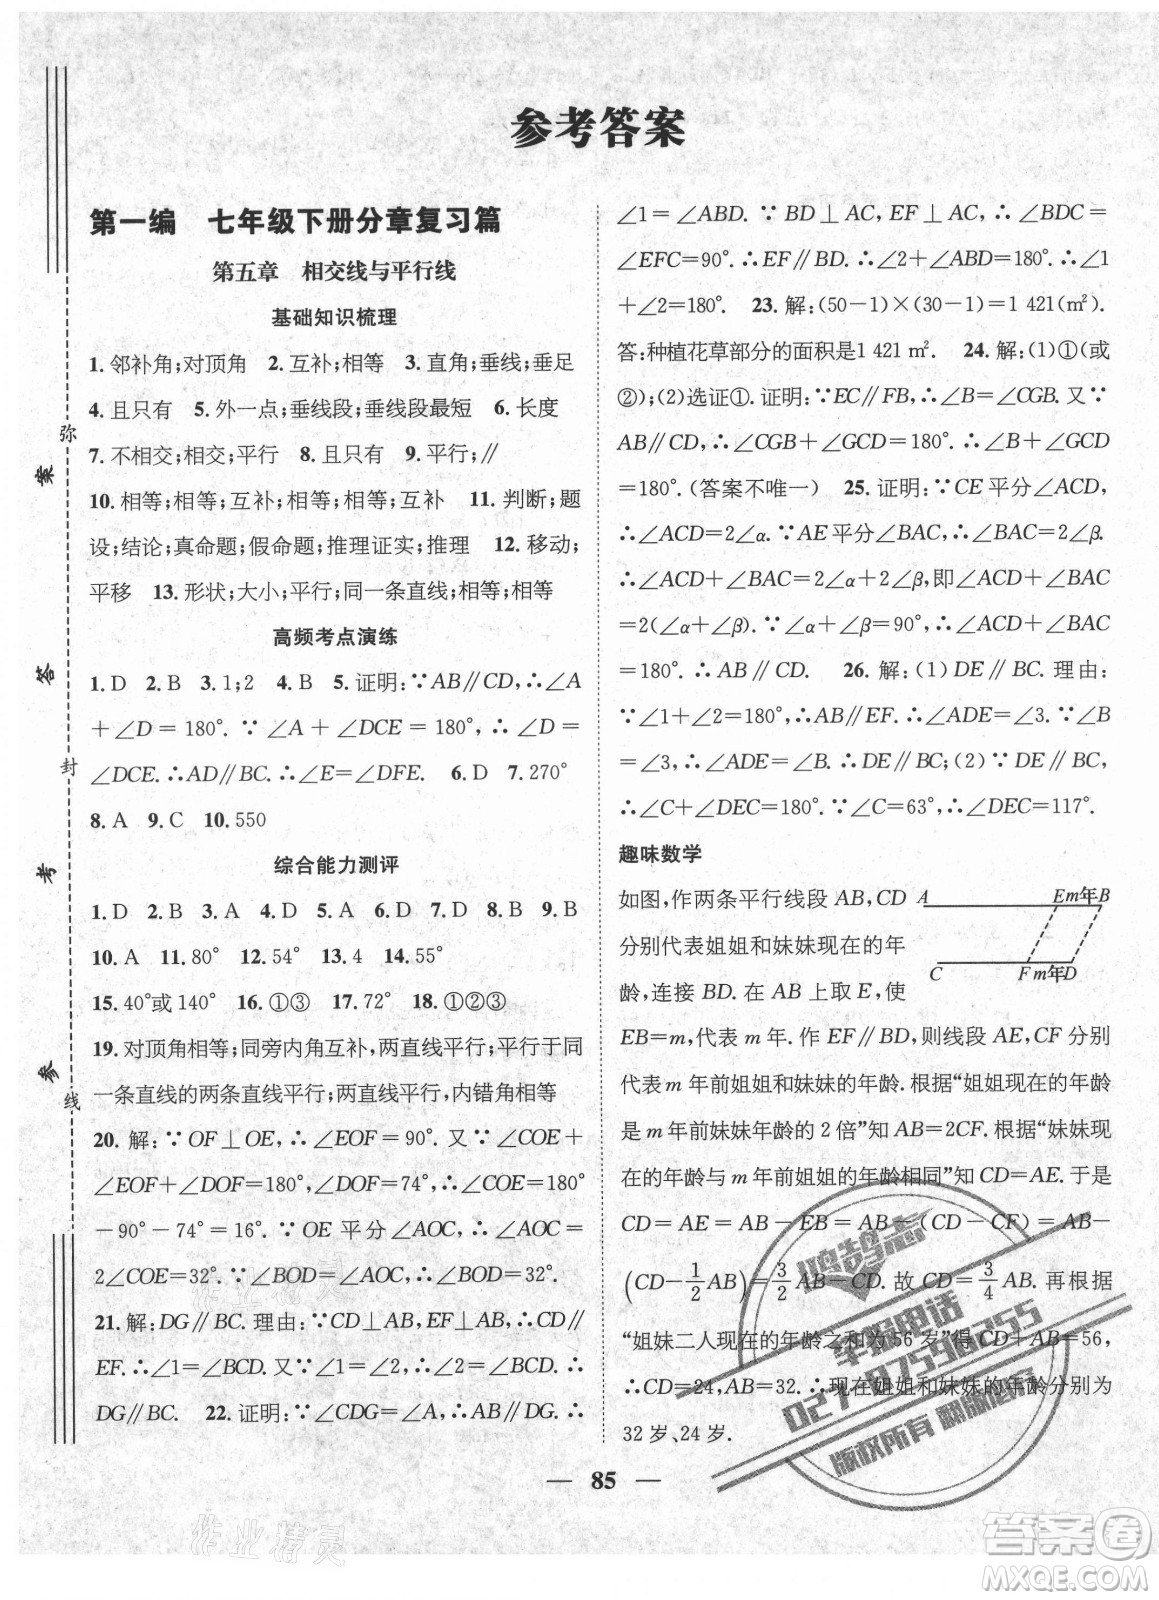 参考答案
第一编　七年级下册分章复习篇
第五章　相交线与平行线
基础知识梳理
1. 邻补角;对顶角　2. 互补;相等　3. 直角;垂线;垂足
4. 且只有　5. 外一点;垂线段;垂线段最短　6. 长度
7. 不相交;相交;平行　8. 有且只有　9. 平行;∥
10. 相等;相等;互补;相等;相等;互补　11. 判断;题
设;结论;真命题;假命题;推理证实;推理　12. 移动;
平移　13. 形状;大小;平行;同一条直线;相等;相等
高频考点演练
1. D　2. B　3. 1;2　4. B　5. 证明:∵AB∥CD,∴∠A
+∠D=180°. ∵ ∠A+∠DCE=180°,∴∠D=
∠DCE. ∴AD∥BC. ∴∠E=∠DFE.　6. D　7. 270°
8. A　9. C　10. 550
综合能力测评
1. D　2. B　3. A　4. D　5. A　6. D　7. B　8. B　9. B
10. A　11. 80°　12. 54°　13. 4　14. 55°
15. 40°或 140°　16. ①③　17. 72°　18. ①②③
19. 对顶角相等;同旁内角互补,两直线平行;平行于同
一条直线的两条直线平行;两直线平行,内错角相等
20. 解:∵OF⊥OE,∴∠EOF=90°. 又∵∠COE+
∠EOF+∠DOF=180°,∠DOF=74°,∴∠COE=180°
-90°-74°=16°. ∵OE 平分∠AOC,∴∠AOC=
2∠COE=32°. ∵∠BOD=∠AOC,∴∠BOD=32°.
21. 解:DG∥BC. 理由:∵CD⊥AB,EF⊥AB,∴CD∥
EF. ∴∠1=∠BCD. 又∵∠1=∠2,∴∠2=∠BCD. ∴
DG∥BC.　22. 证明:∵∠CDG=∠A,∴AB∥DG. ∴
∠1=∠ABD. ∵BD⊥AC,EF⊥AC,∴∠BDC=
∠EFC=90°. ∴EF∥BD. ∴∠2+∠ABD=180°. ∴∠1
+∠2=180°.　23. 解:(50-1)×(30-1)=1 421(m²).
答:种植花草部分的面积是1 421 m².　24. 解:(1)①(或
②);(2)选证①. 证明:∵EC∥FB,∴∠B=∠CGB. 又∵
AB∥CD,∴∠CGB+∠C=180°. ∴∠B+∠C=
180°.(答案不唯一)　25. 证明:∵CE 平分∠ACD,
∴∠ACD=2∠α. ∵AE平分∠BAC,∴∠BAC=2∠β.
∴∠ACD+∠BAC=2∠α+2∠β,即∠ACD+∠BAC=
2(∠α+∠β). ∵∠α+∠β=90°,∴∠ACD+∠BAC
=180°. ∴AB∥CD.　26. 解:(1)DE∥BC. 理由:
∵∠1+∠2=180°,∴AB∥EF. ∴∠ADE=∠3. ∵∠B
=∠3,∴∠ADE=∠B. ∴DE∥BC;(2)∵DE∥BC,
∴∠C+∠DEC=180°. ∵∠C=63°,∴∠DEC=117°.
趣味数学
如图,作两条平行线段 AB,CD
分别代表姐姐和妹妹现在的年
龄,连接 BD. 在 AB 上取 E,使
A E m年 B
C F m年 D
EB=m,代表 m 年. 作 EF∥BD,则线段 AE,CF 分别
代表 m 年前姐姐和妹妹的年龄. 根据“姐姐现在的年龄
是 m 年前妹妹年龄的 2 倍”知 AB=2CF. 根据“妹妹现
在的年龄与 m 年前姐姐的年龄相同”知 CD=AE. 于是
CD=AE=AB-EB=AB-(CD-CF)=AB-
(CD-1/2 AB)=3/2 AB-CD. 故 CD=3/4 AB. 再根据
“姐妹二人现在的年龄之和为 56 岁”得 CD+AB=56,
∴CD=24,AB=32. ∴现在姐姐和妹妹的年龄分别为
32 岁、24 岁.
— 85 —
弥
封
线
参
考
答
案
鸿鹄志
举报电话
027-87596255
版权所有 翻版必究
作业精灵
答案圈
MXQE.COM